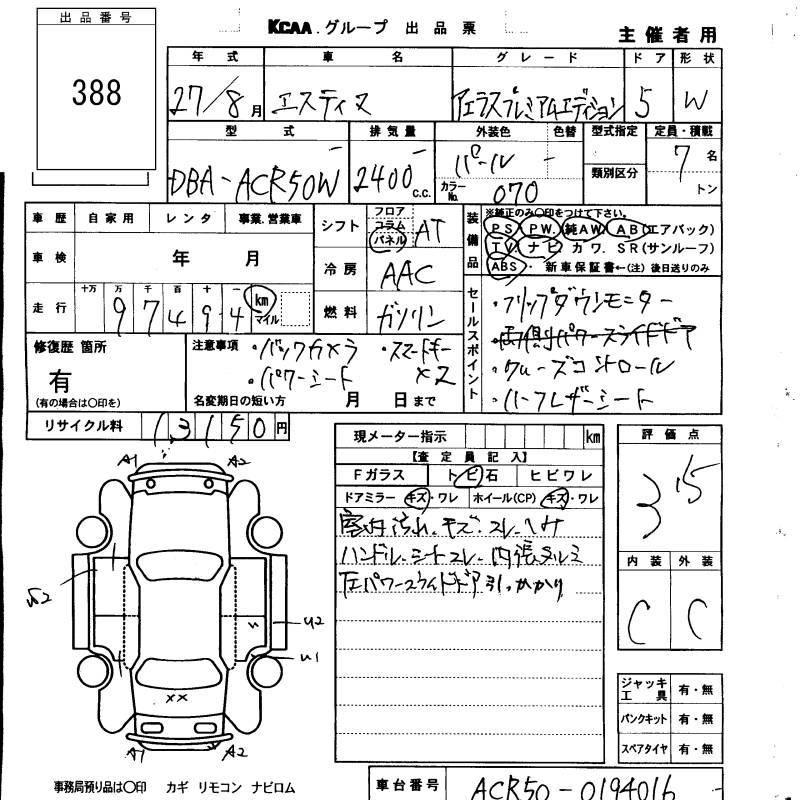 出品番号
388
KCAA.グループ 出品票
主催者用
年式 車名 グレード ドア 形状
27/8月 エスティマ アエラスプレミアムエディション 5 W
型式 排気量 外装色 色替 型式指定 定員・積載
類別区分
DBA-ACR50W 2400 c.c. パール - 7名
カラーNo. 070 トン
車歴 自家用 レンタ 事業.営業車
シフト フロア コラム パネル AT
装備品
※純正のみ〇印をつけて下さい。
PS PW. 純AW. AB(エアバック)
TV. ナビ カワ. SR(サンルーフ)
ABS・新車保証書←(注)後日送りのみ
車検 年 月
冷房 AAC
走行 十万 万 千 百 十 一
97494 km マイル
燃料 ガソリン
セールスポイント
・フリップダウンモニター
・両側パワースライドドア
・クルーズコントロール
・ハーフレザーシート
修復歴 箇所
有
(有の場合は〇印を)
注意事項 ・バックカメラ ・スマートキー
・パワーシート ×2
名変期日の短い方 月 日まで
リサイクル料 13150円
現メーター指示 km
【査定員記入】
Fガラス トビ石 ヒビワレ
ドアミラー キズ・ワレ ホイール(CP) キズ・ワレ
室内汚れ.キズ.スレ.ヘコミ
ハンドル.シートスレ.内張タルミ
左パワースライドドア引っかかり
評価点
3.5
内装 外装
C C
A1 A2
U2
U1
××
A1 A2
ジャッキ工具 有・無
パンクキット 有・無
スペアタイヤ 有・無
事務局預り品は〇印 カギ リモコン ナビロム
車台番号 ACR50-0194016